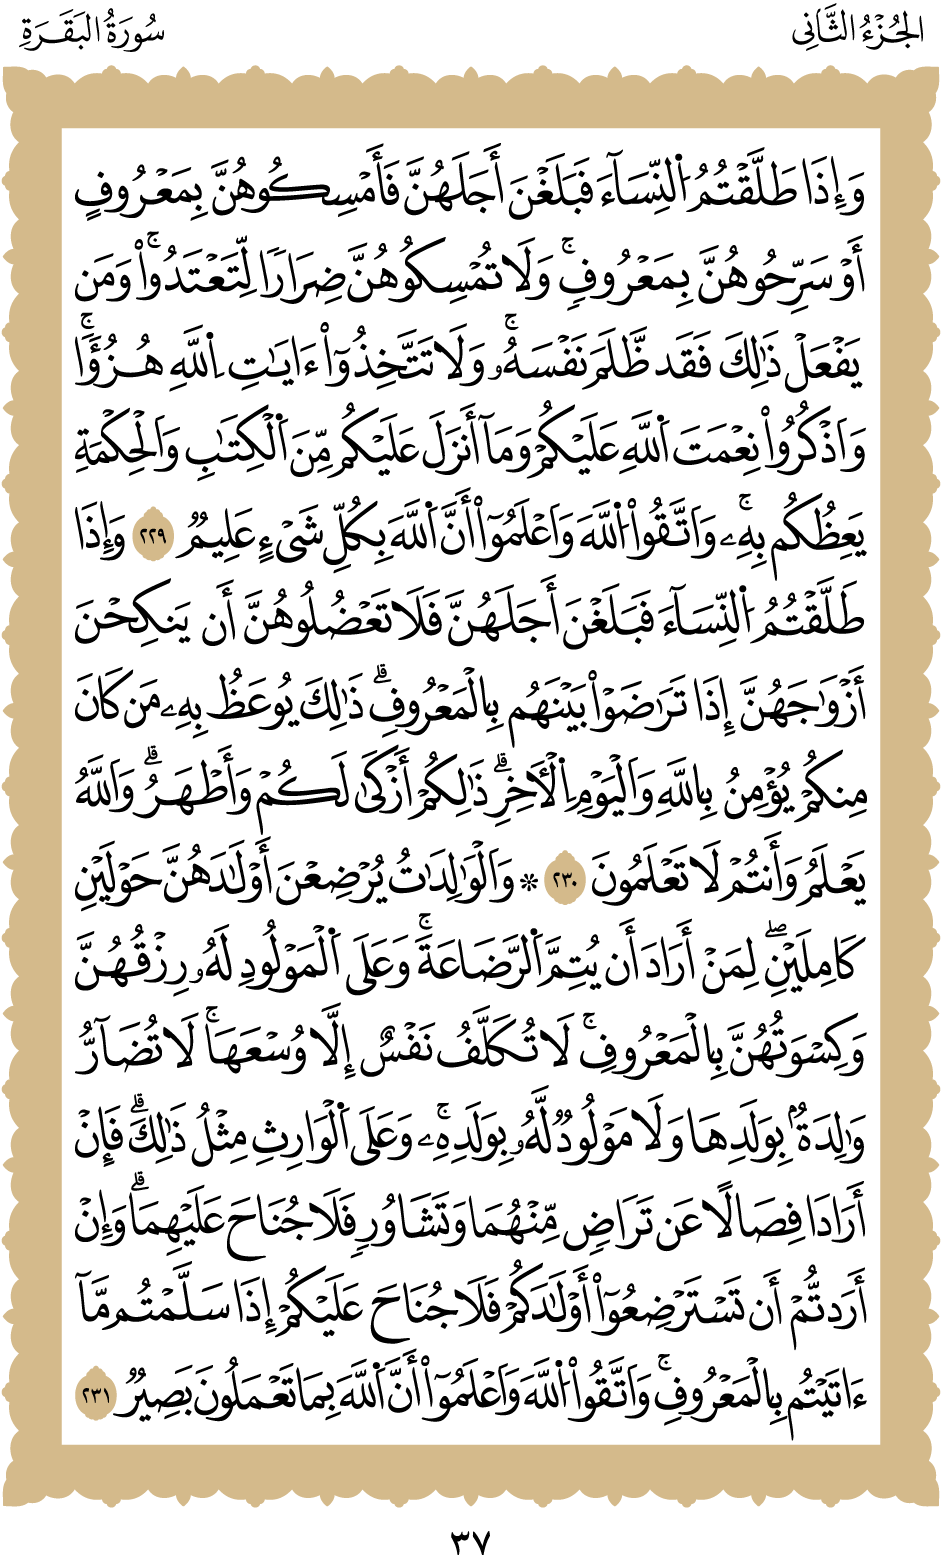 الجُزْءُ الثَّانِي
سُورَةُ البَقَرَةِ
وَإِذَا طَلَّقْتُمُ اُ۬لنِّسَآءَ فَبَلَغْنَ أَجَلَهُنَّ فَأَمْسِكُوهُنَّ بِمَعْرُوفٍ
أَوْ سَرِّحُوهُنَّ بِمَعْرُوفٖۚ وَلَا تُمْسِكُوهُنَّ ضِرَارٗا لِّتَعْتَدُواْۚ وَمَن
يَفْعَلْ ذَٰلِكَ فَقَد ظَّلَمَ نَفْسَهُۥۚ وَلَا تَتَّخِذُوٓاْ ءَايَٰتِ اِ۬للَّهِ هُزُؤٗاۚ
وَاَذْكُرُواْ نِعْمَتَ اَ۬للَّهِ عَلَيْكُمْ وَمَآ أَنزَلَ عَلَيْكُم مِّنَ اَ۬لْكِتَٰبِ وَالْحِكْمَةِ
يَعِظُكُم بِهِۦۚ وَاَتَّقُواْ اُ۬للَّهَ وَاَعْلَمُوٓاْ أَنَّ اَ۬للَّهَ بِكُلِّ شَيْءٍ عَلِيمٞ ٢٢٩ وَإِذَا
طَلَّقْتُمُ اُ۬لنِّسَآءَ فَبَلَغْنَ أَجَلَهُنَّ فَلَا تَعْضُلُوهُنَّ أَن يَنكِحْنَ
أَزْوَٰجَهُنَّ إِذَا تَرَٰضَوْاْ بَيْنَهُم بِالْمَعْرُوفِۗ ذَٰلِكَ يُوعَظُ بِهِۦ مَن كَانَ
مِنكُمْ يُؤْمِنُ بِاللَّهِ وَالْيَوْمِ اِ۬لْأٓخِرِۗ ذَٰلِكُمْ أَزْكَىٰ لَكُمْ وَأَطْهَرُۗ وَاَللَّهُ
يَعْلَمُ وَأَنتُمْ لَا تَعْلَمُونَ ٢٣٠ ۞ وَالْوَٰلِدَٰتُ يُرْضِعْنَ أَوْلَٰدَهُنَّ حَوْلَيْنِ
كَامِلَيْنِۖ لِمَنْ أَرَادَ أَن يُتِمَّ اَ۬لرَّضَاعَةَۚ وَعَلَى اَ۬لْمَوْلُودِ لَهُۥ رِزْقُهُنَّ
وَكِسْوَتُهُنَّ بِالْمَعْرُوفِۚ لَا تُكَلَّفُ نَفْسٌ إِلَّا وُسْعَهَاۚ لَا تُضَآرُّ
وَٰلِدَةُۢ بِوَلَدِهَا وَلَا مَوْلُودٞ لَّهُۥ بِوَلَدِهِۦۚ وَعَلَى اَ۬لْوَارِثِ مِثْلُ ذَٰلِكَۗ فَإِنْ
أَرَادَا فِصَالًا عَن تَرَاضٖ مِّنْهُمَا وَتَشَاوُرٖ فَلَا جُنَاحَ عَلَيْهِمَاۗ وَإِنْ
أَرَدتُّمْ أَن تَسْتَرْضِعُوٓاْ أَوْلَٰدَكُمْ فَلَا جُنَاحَ عَلَيْكُمْ إِذَا سَلَّمْتُم مَّآ
ءَاتَيْتُم بِالْمَعْرُوفِۚ وَاَتَّقُواْ اُ۬للَّهَ وَاَعْلَمُوٓاْ أَنَّ اَ۬للَّهَ بِمَا تَعْمَلُونَ بَصِيرٞ ٢٣١
٣٧